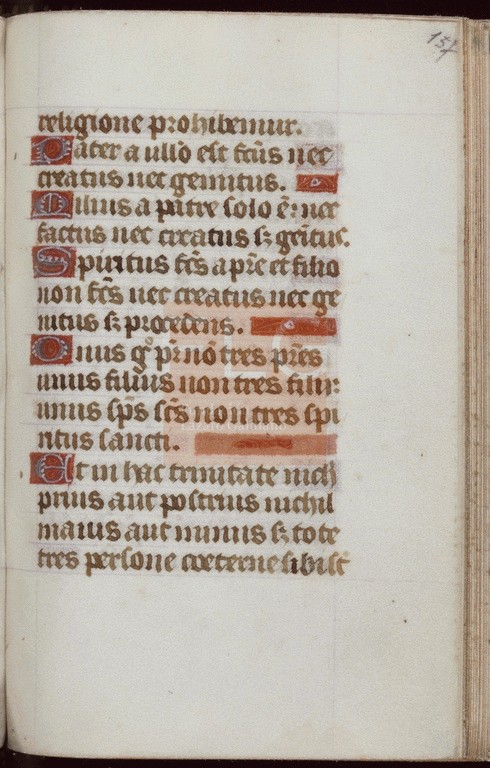 137
religione prohibemur.
Pater a ullo est fc̄us nec
creatus nec genitus.
Filius a patre solo ē: nec
factus nec creatus sꝫ geñtus.
Spiritus sc̄s a pr̄e et filio
non fc̄s nec creatus nec ge
nitus sꝫ procedens.
Unus gͦ pr̄ nō tres pr̄es
unus filius non tres filii:
unus sp̄s sc̄s non tres spi
ritus sancti.
Et in hac trinitate nich
prius aut posterius nichil
maius aut minus sꝫ tote
tres persone coeterne sibi st̄
Lázaro Galdiano